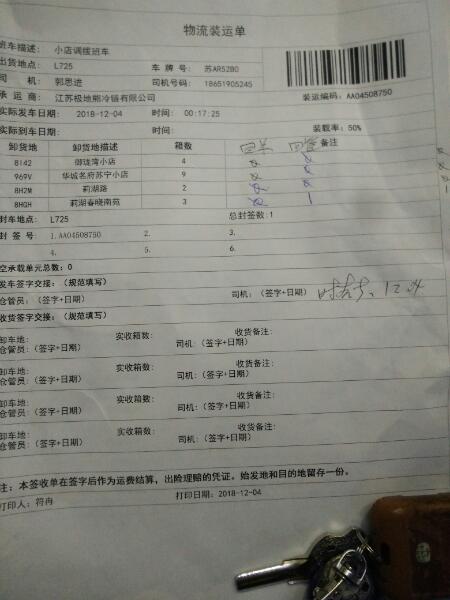 物流装运单
班车描述: 小店调拨班车
出货地点: L725 车 牌 号: 苏AR52B0
司 机: 郭思进 司机号码: 18651905245
承 运 商: 江苏极地熊冷链有限公司 装运编码: AA04508750
实际发车日期: 2018-12-04 时间: 00:17:25
实际到车日期: 时间: 装载率: 50%
卸货地 卸货地描述 箱数 回单 备注
8142 御珑湾小店 4
969V 华城名府苏宁小店 9
8H2M 莉湖路 2
8HGH 莉湖春晓南苑 3 1
封车地点: L725 总封签数:1
封 签 号: 1.AA04508750 2. 3.
4. 5. 6.
空承载单元总数: 0
发车签字交接: (规范填写)
仓管员: (签字+日期) 司机: (签字+日期)
收货签字交接: (规范填写)
卸车地: 实收箱数: 收货备注:
仓管员: (签字+日期) 司机: (签字+日期)
卸车地: 实收箱数: 收货备注:
仓管员: (签字+日期) 司机: (签字+日期)
卸车地: 实收箱数: 收货备注:
仓管员: (签字+日期) 司机: (签字+日期)
卸车地: 实收箱数: 收货备注:
仓管员: (签字+日期) 司机: (签字+日期)
注: 本签收单在签字后作为运费结算, 出险理赔的凭证。始发地和目的地留存一份。
打印人: 符冉 打印日期: 2018-12-04